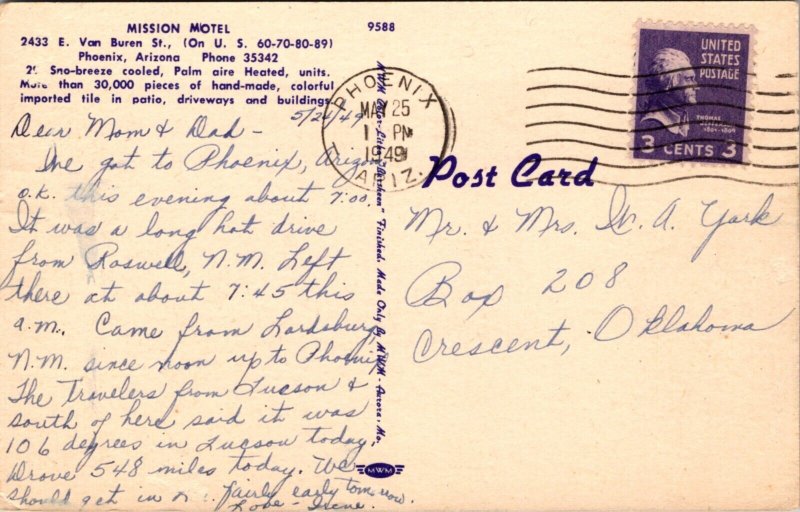 MISSION MOTEL
2433 E. Van Buren St., (On U. S. 60-70-80-89)
Phoenix, Arizona Phone 35342
Sno-breeze cooled, Palm aire Heated, units.
More than 30,000 pieces of hand-made, colorful
imported tile in patio, driveways and buildings.
9588
5/24/49
Dear Mom & Dad -
We got to Phoenix, Arizona
o.k. this evening about 7:00.
It was a long hot drive
from Roswell, N.M. Left
there at about 7:45 this
a.m. Came from Lordsburg,
N.M. since noon up to Phoenix.
The travelers from Tucson &
south of here said it was
106 degrees in Tucson today.
Drove 548 miles today. We
should get in fairly early tomorrow.
Love - Irene.
Finished. Made Only By MWM - Aurora, Mo.
MWM
PHOENIX
MAY 25
PM
1949
ARIZ.
UNITED
STATES
POSTAGE
THOMAS
JEFFERSON
1801-1809
3 CENTS 3
Post Card
Mr. & Mrs. W. A. York
Box 208
Crescent, Oklahoma